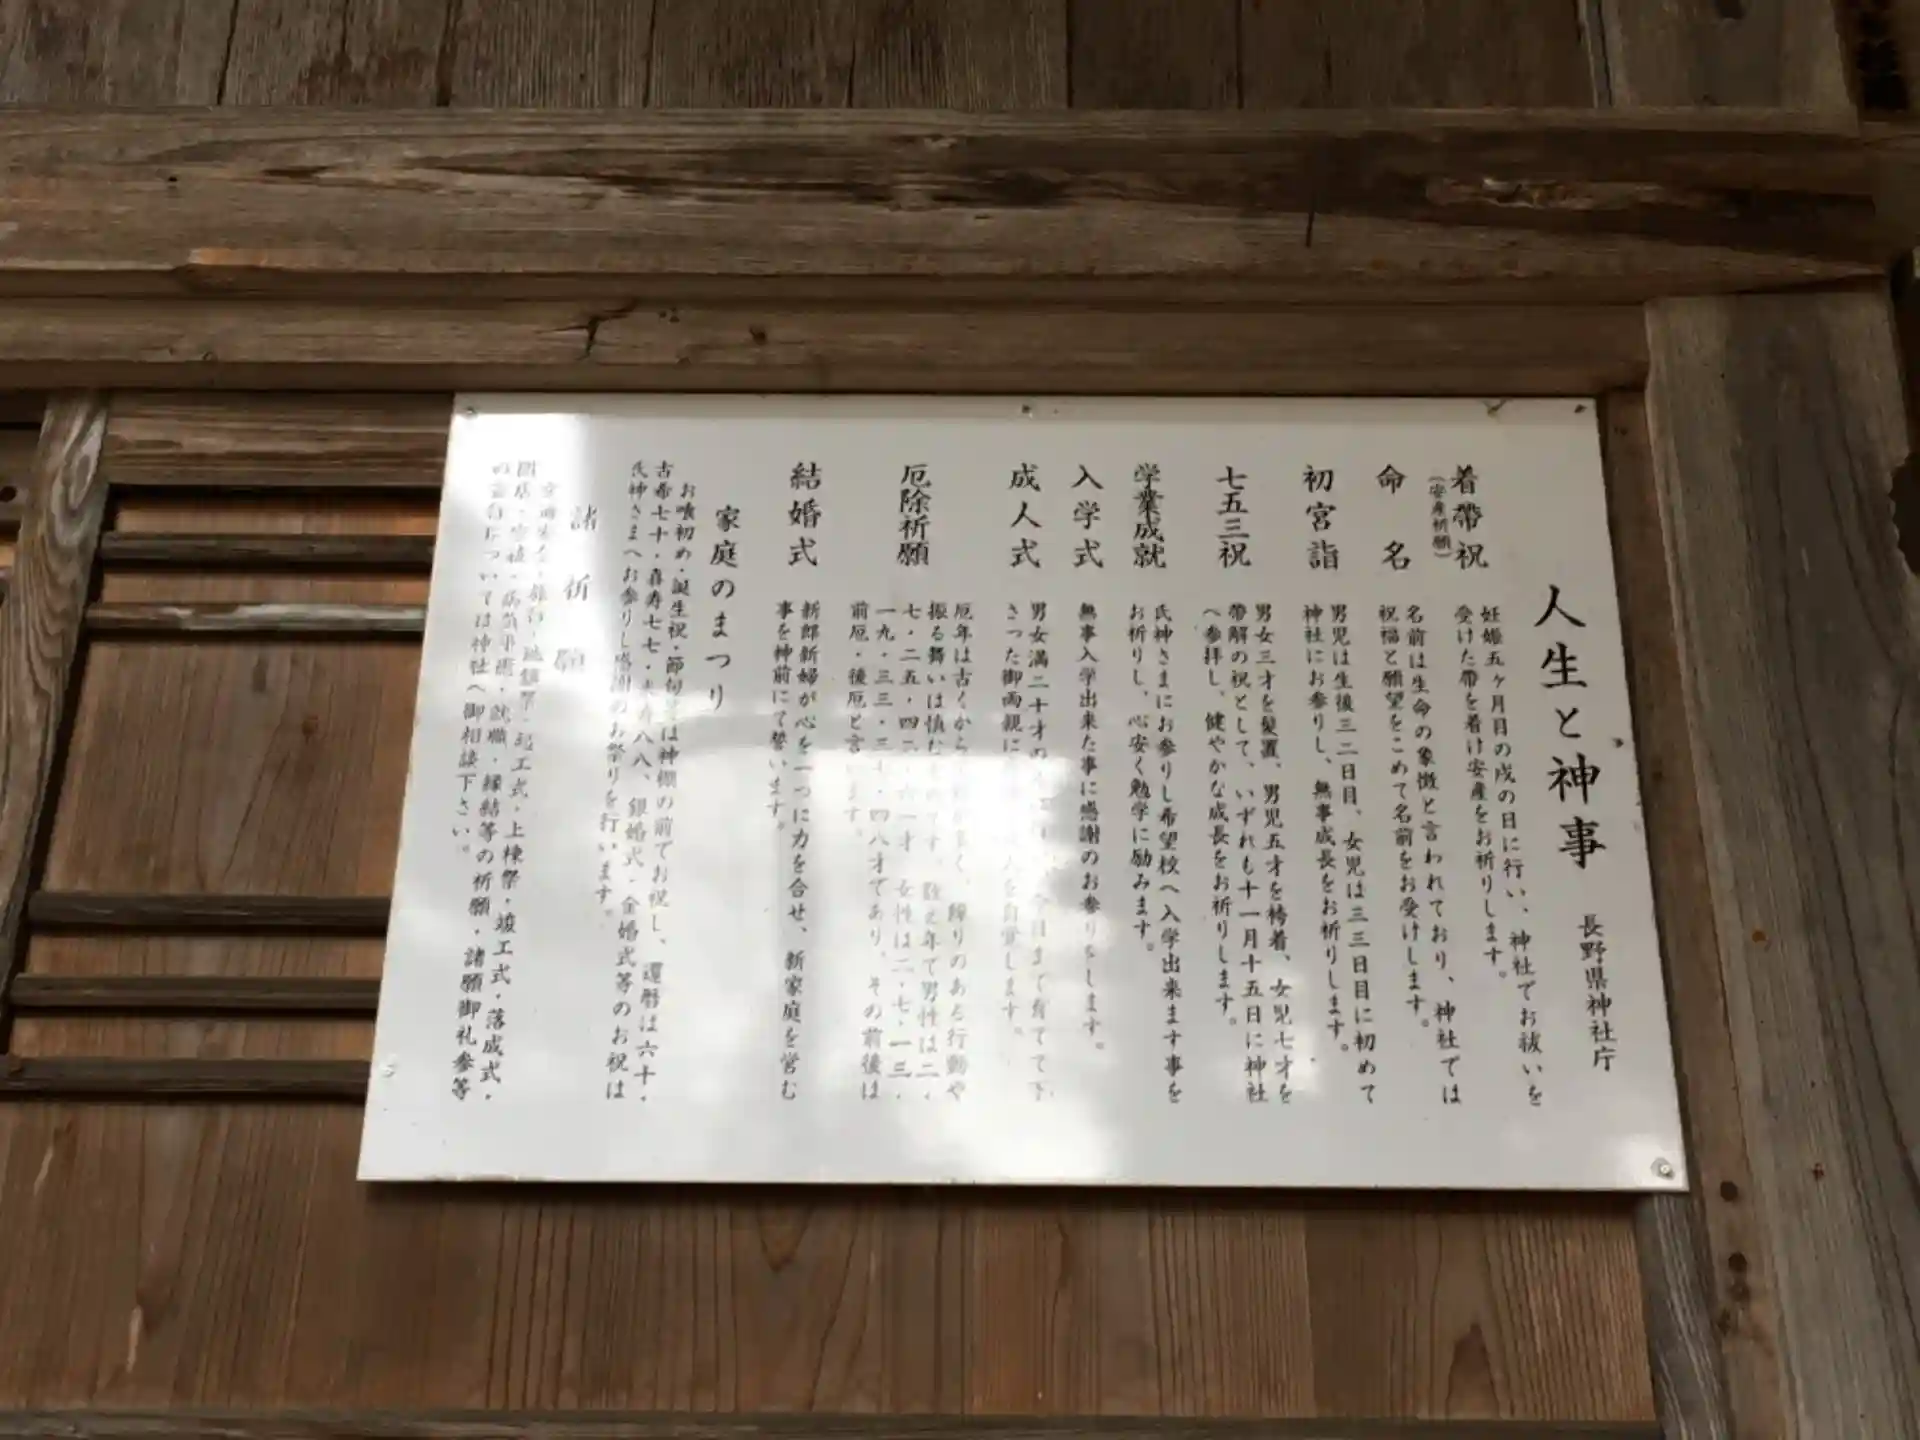 人生と神事
長野県神社庁
着帯祝
(安産祈願)
妊娠五ヶ月目の戌の日に行い、神社でお祓いを
受けた帯を着け安産をお祈りします。
命名
名前は生命の象徴と言われており、神社では
祝福と願望をこめて名前をお受けします。
初宮詣
男児は生後三二日目、女児は三三日目に初めて
神社にお参りし、無事成長をお祈りします。
七五三祝
男女三才を髪置、男児五才を袴着、女児七才を
帯解の祝として、いずれも十一月十五日に神社
へ参拝し、健やかな成長をお祈りします。
学業成就
氏神さまにお参りし希望校へ入学出来ます事を
お祈りし、心安く勉学に励みます。
入学式
無事入学出来た事に感謝のお参りをします。
成人式
男女満二十才の 今日まで育てて下
さった御両親に 人を自覚します。
厄除祈願
厄年は古くから 多く、障りのある行動や
振る舞いは慎む です。数え年で男性は二・
七・二五・四二・六一才 女性は二・七・一三・
一九・三三・三七・四八才であり、その前後は
前厄・後厄と言います。
結婚式
新郎新婦が心を一つに力を合せ、新家庭を営む
事を神前にて誓います。
家庭のまつり
お喰初め・誕生祝・節句では神棚の前でお祝し、還暦は六十・
古希七十・喜寿七七・米寿八八、銀婚式・金婚式等のお祝は
氏神さまへお参りし感謝のお祭りを行います。
諸祈願
交通安全・旅行・地鎮祭・起工式・上棟祭・竣工式・落成式・
開店・ 病気平癒・就職・縁結等の祈願・諸願御礼参等
の については神社へ御相談下さい。